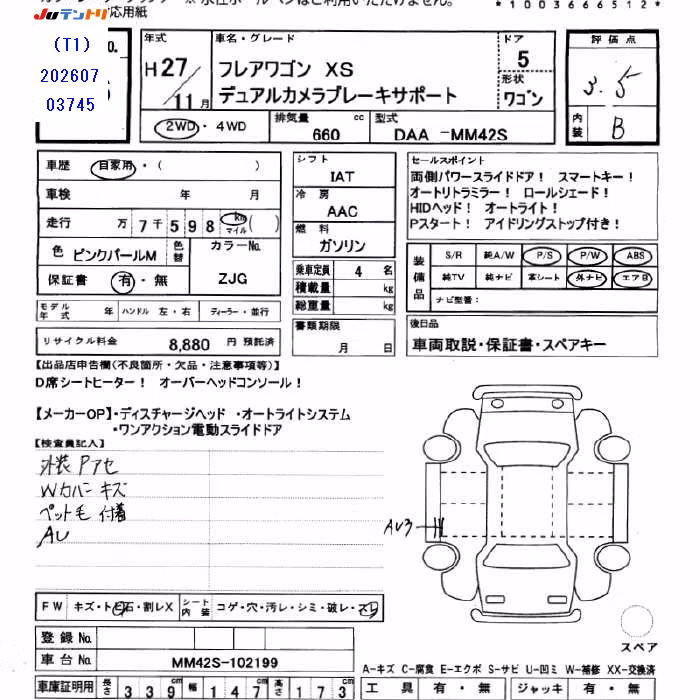 JUテントリ 応用紙
*1003666512*
(T1)
202607
03745
年式 車名・グレード ドア 評価点
H27/11月 フレアワゴン XS 5 3.5
デュアルカメラブレーキサポート 形状 ワゴン
2WD・4WD 排気量 660 cc 型式 DAA -MM42S 内装 B
車歴 自家用・( )
車検 年 月
走行 万 7千598 km マイル ( )
色 ピンクパールM 色替 カラーNo. ZJG
保証書 有・無
シフト IAT
冷房 AAC
燃料 ガソリン
乗車定員 4 名
積載量 kg
総重量 kg
モデル年式 年 ハンドル 左・右 ディーラー・並行
リサイクル料金 8,880 円 預託済
書類期限 月 日
セールスポイント
両側パワースライドドア! スマートキー!
オートリトラミラー! ロールシェード!
HIDヘッド! オートライト!
Pスタート! アイドリングストップ付き!
装備品 S/R 純A/W P/S P/W ABS
純TV 純ナビ 革シート 外ナビ エアB
ナビ型番:
後日品
車両取説・保証書・スペアキー
【出品店申告欄(不良箇所・欠品・注意事項等)】
D席シートヒーター! オーバーヘッドコンソール!
【メーカーOP】・ディスチャージヘッド ・オートライトシステム
・ワンアクション電動スライドドア
【検査員記入】
外装 Pアセ
Wカバー キズ
ペット毛 付着
AU
AU3
FW キズ・トビ石・割レX シート内装 コゲ・穴・汚レ・シミ・破レ・スレ
登録No.
車台No. MM42S-102199
スペア
A-キズ C-腐食 E-エクボ S-サビ U-凹ミ W-補修 XX-交換済
車庫証明用 長さ 339 cm 幅 147 cm 高さ 173 cm 工具 有・無 ジャッキ 有・無